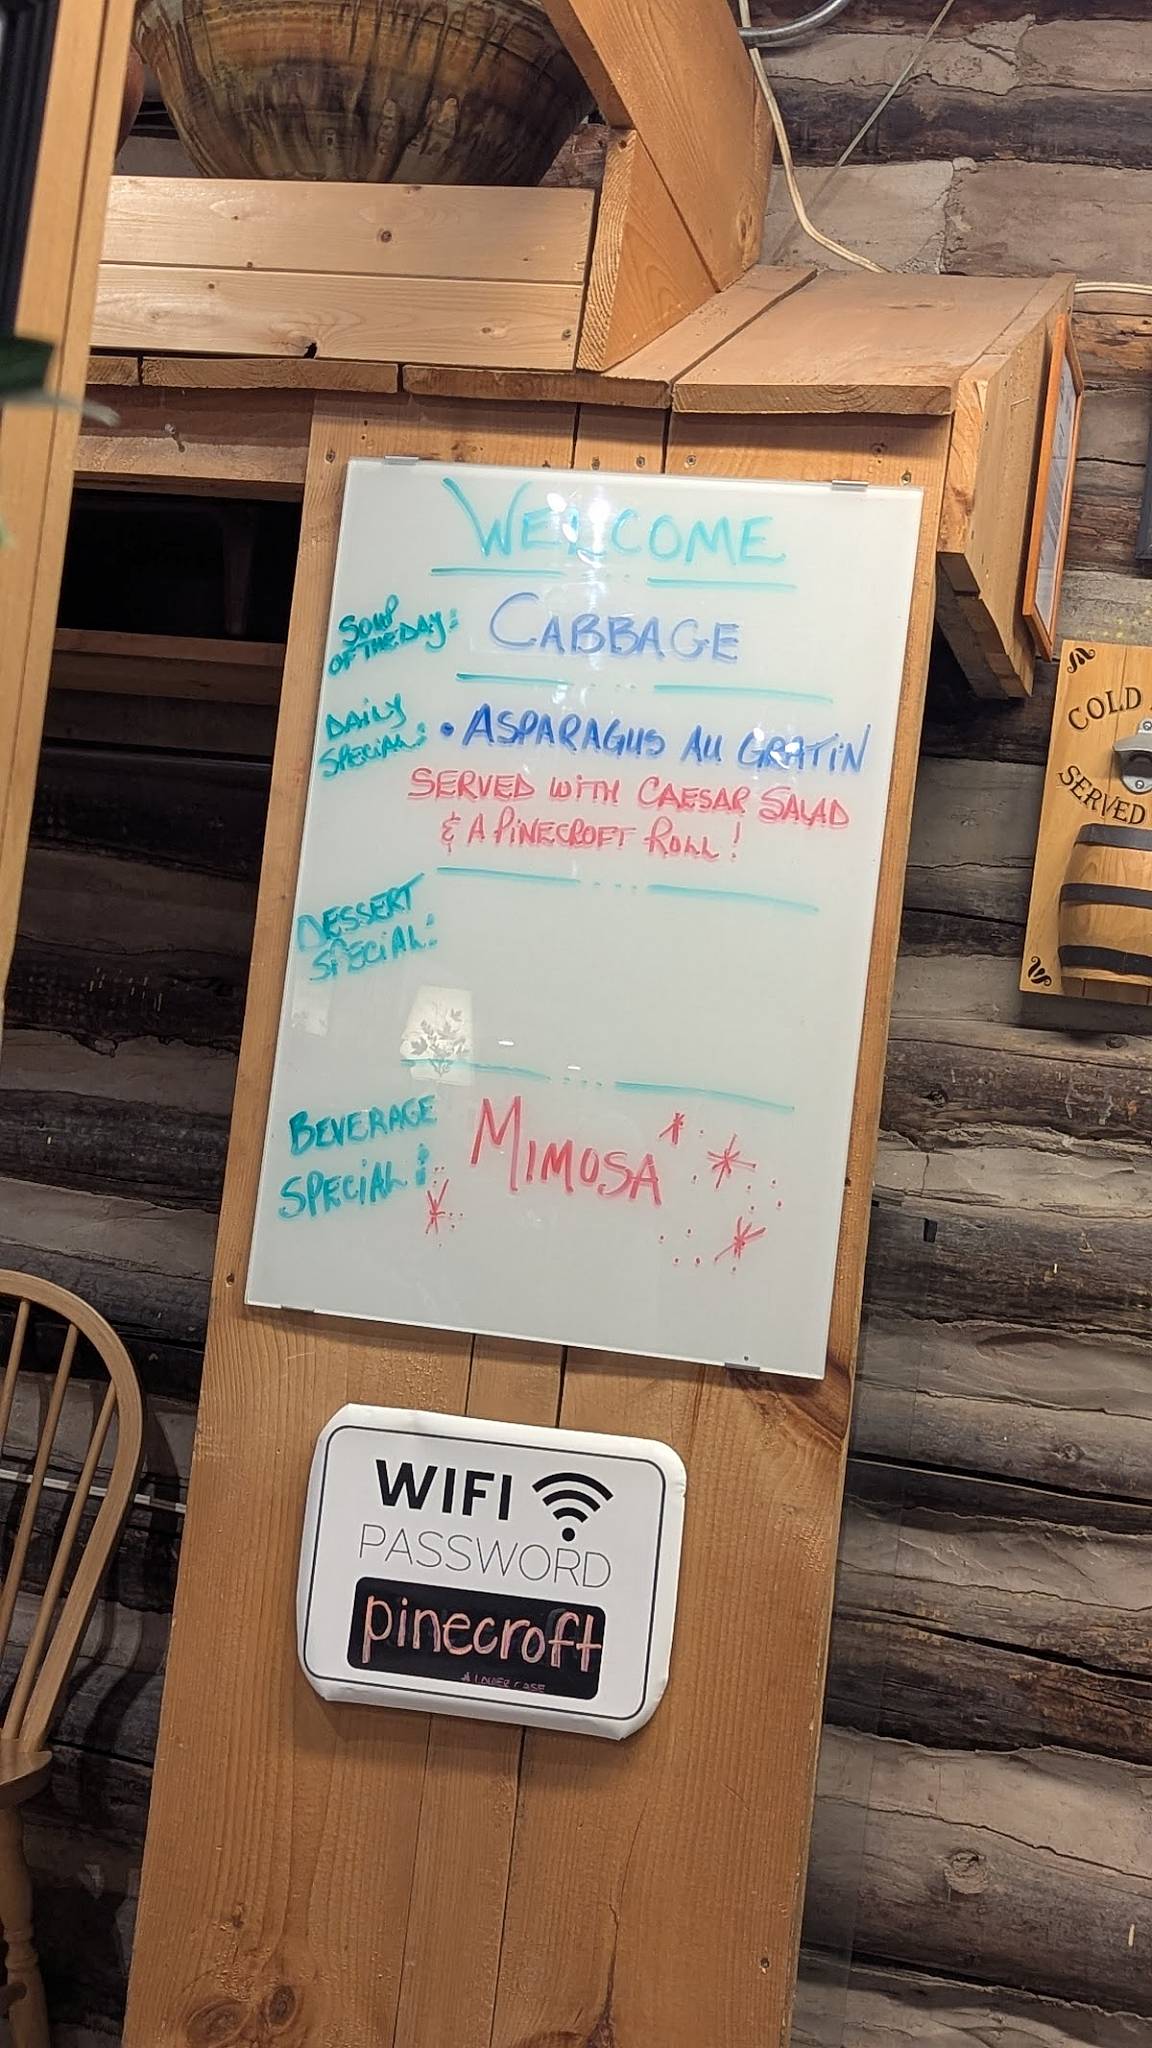 WELCOME
SOUP
OF THE DAY:
CABBAGE
DAILY
SPECIAL:
• ASPARAGUS AU GRATIN
SERVED WITH CAESAR SALAD
& A PINECROFT ROLL!
DESSERT
SPECIAL:
BEVERAGE
SPECIAL:
MIMOSA
COLD
SERVED
WIFI
PASSWORD
pinecroft
LOWER CASE